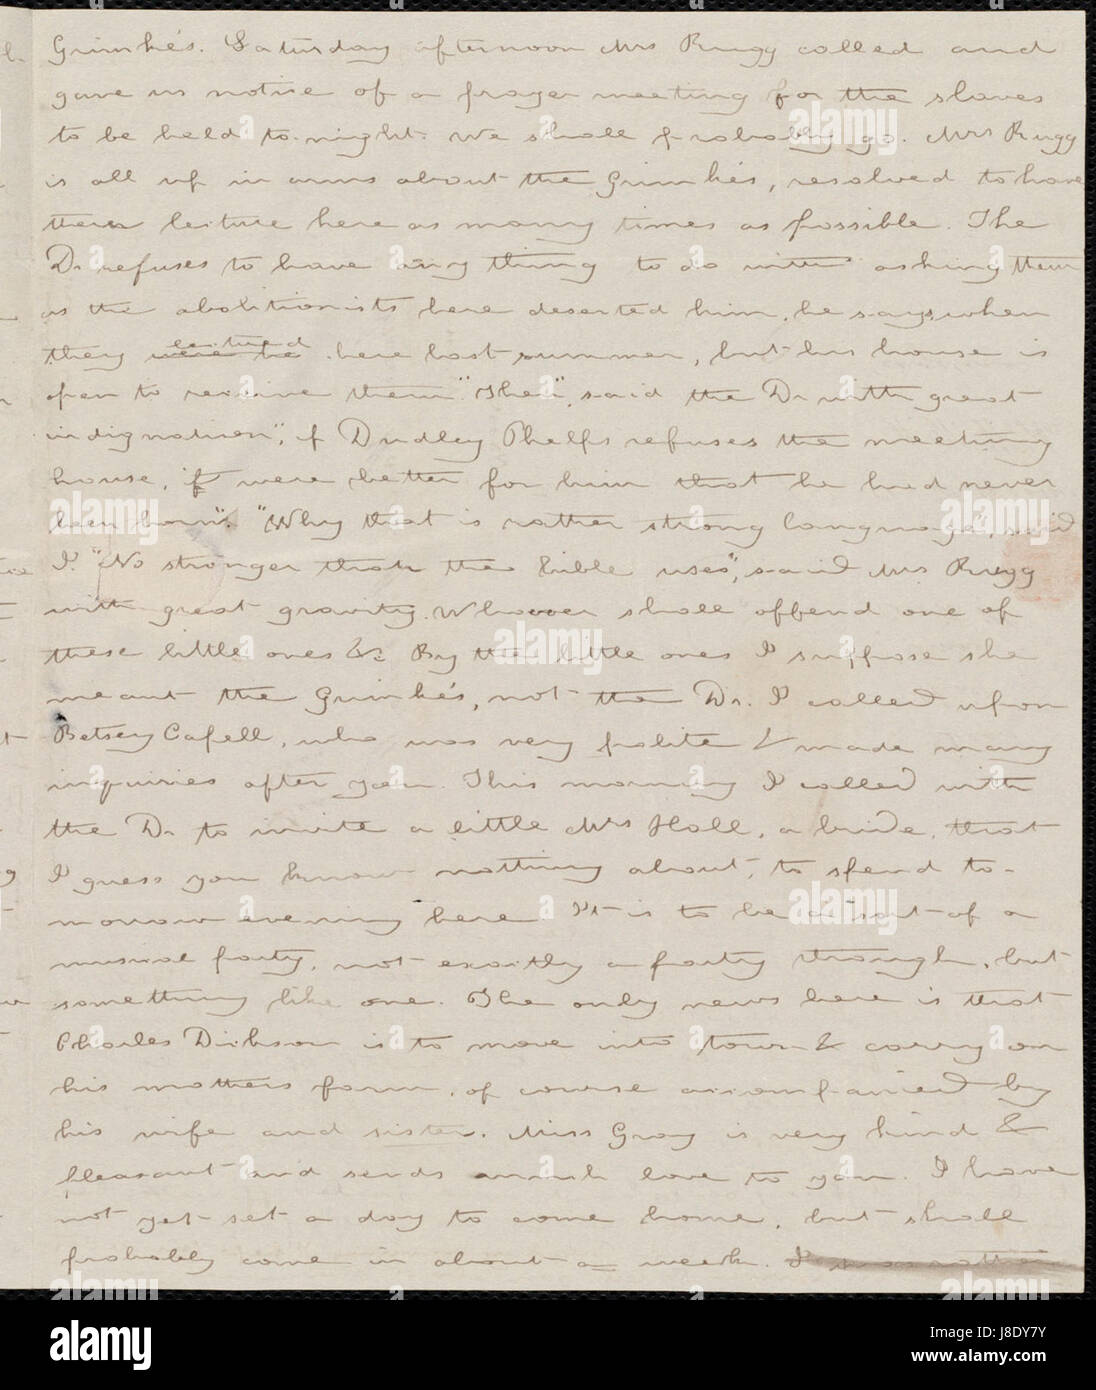 Grimkés. Saturday afternoon Mrs Rugg called and
gave us notice of a prayer meeting for the slaves
to be held to-night. We shall probably go. Mrs Rugg
is all up in arms about the Grimkés, resolved to have
them lecture here as many times as possible. The
Dr refuses to have any thing to do with asking them
as the abolitionists here deserted him, he says when
they were he lectured here last summer, but his house is
open to receive them. "Then", said the Dr with great
indignation", if Dudley Phelps refuses the meeting
house, it were better for him that he had never
been born". "Why that is rather strong language", said
I. "No stronger than the bible uses", said Mrs Rugg
with great gravity. Whoever shall offend one of
these little ones &c By the little ones I suppose she
meant the Grimkés, not the Dr. I called upon
Betsey Capell, who was very polite & made many
inquiries after you. This morning I called with
the Dr to invite a little Mrs Hall, a bride, that
I guess you know nothing about, to spend to-
morrow evening here. It is to be a sort of a
musical party, not exactly a party though, but
something like one. The only news here is that
Charles Dickson is to move into town & carry on
his mothers farm, of course accompanied by
his wife and sister. Miss Gray is very kind &
pleasant and sends much love to you. I have
not yet set a day to come home, but shall
probably come in about a week.
alamy
Image ID: J8DY7Y
www.alamy.com